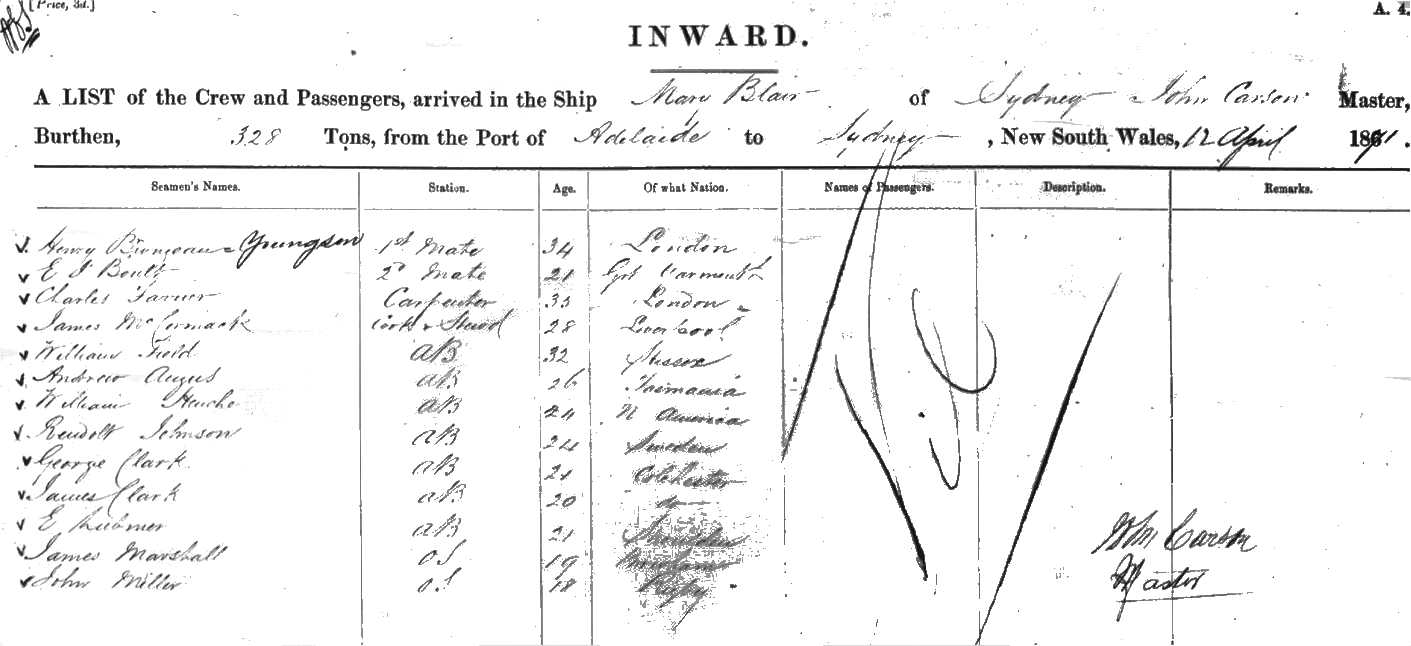 [Price, 3d.]
A. 4.
INWARD.
A LIST of the Crew and Passengers, arrived in the Ship Mary Blair of Sydney John Carson Master,
Burthen, 328 Tons, from the Port of Adelaide to Sydney, New South Wales, 12 April 1871.
Seamen's Names. Station. Age. Of what Nation. Names of Passengers. Description. Remarks.
Henry Youngson 1st Mate 34 London
E J Boult 2d Mate 21 Grt Yarmouth
Charles Farrier Carpenter 33 London
James McCormack Cook & Steward 28 Liverpool
William Field AB 32 Sussex
Andrew Angus AB 26 Tasmania
William AB 24 N America
Johnson AB 24 Sweden
George Clark AB 21 Colchester
James Clark AB 20
E AB 21
James Marshall OS 19
John Miller OS 18 Rugby
John Carson
Master